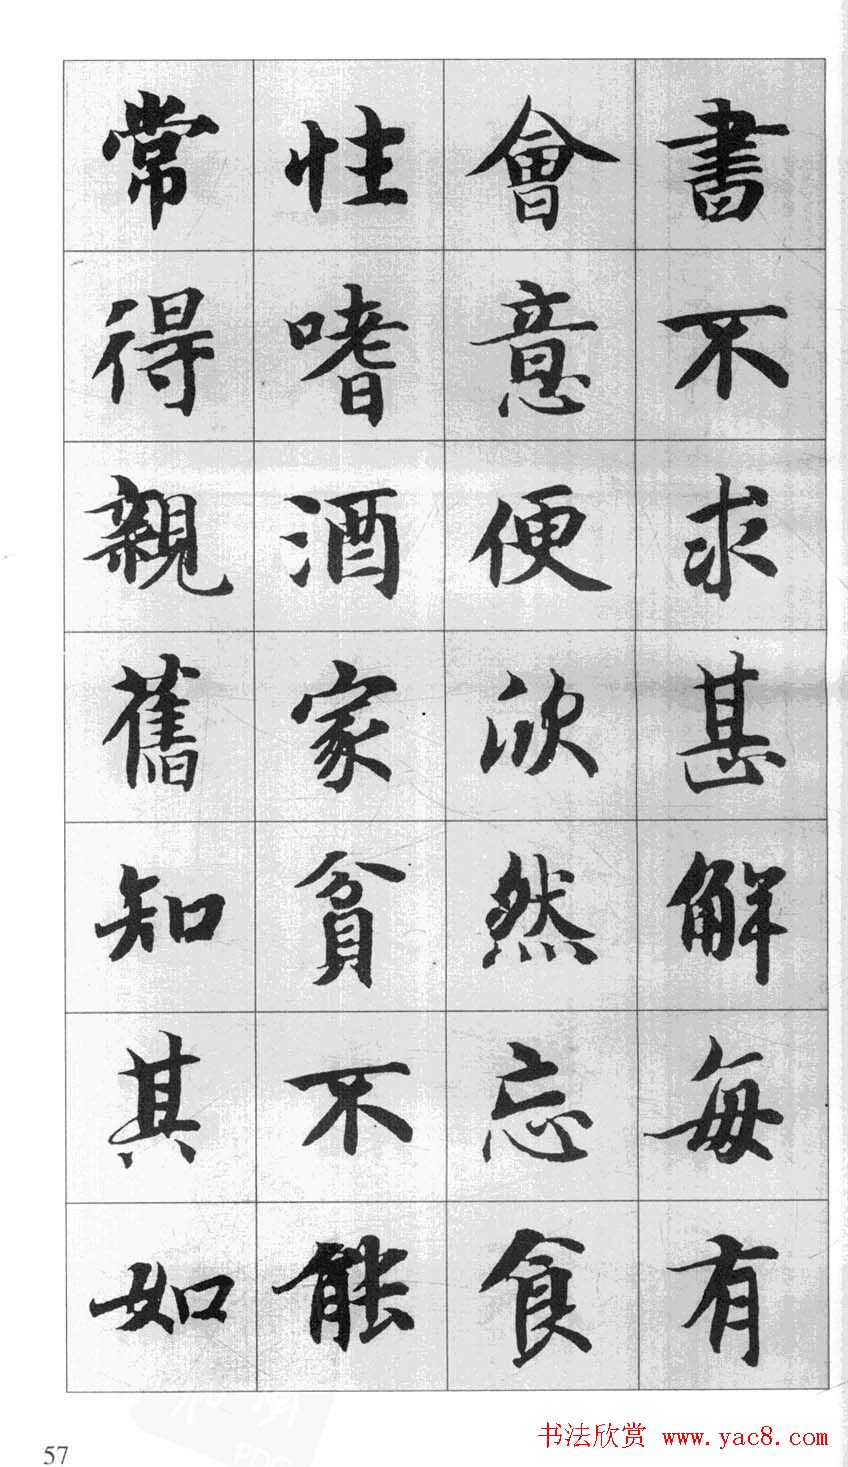 書不求甚解每有
會意便欣然忘食
性嗜酒家貧不能
常得親舊知其如
57
书法欣赏 www.yac8.com